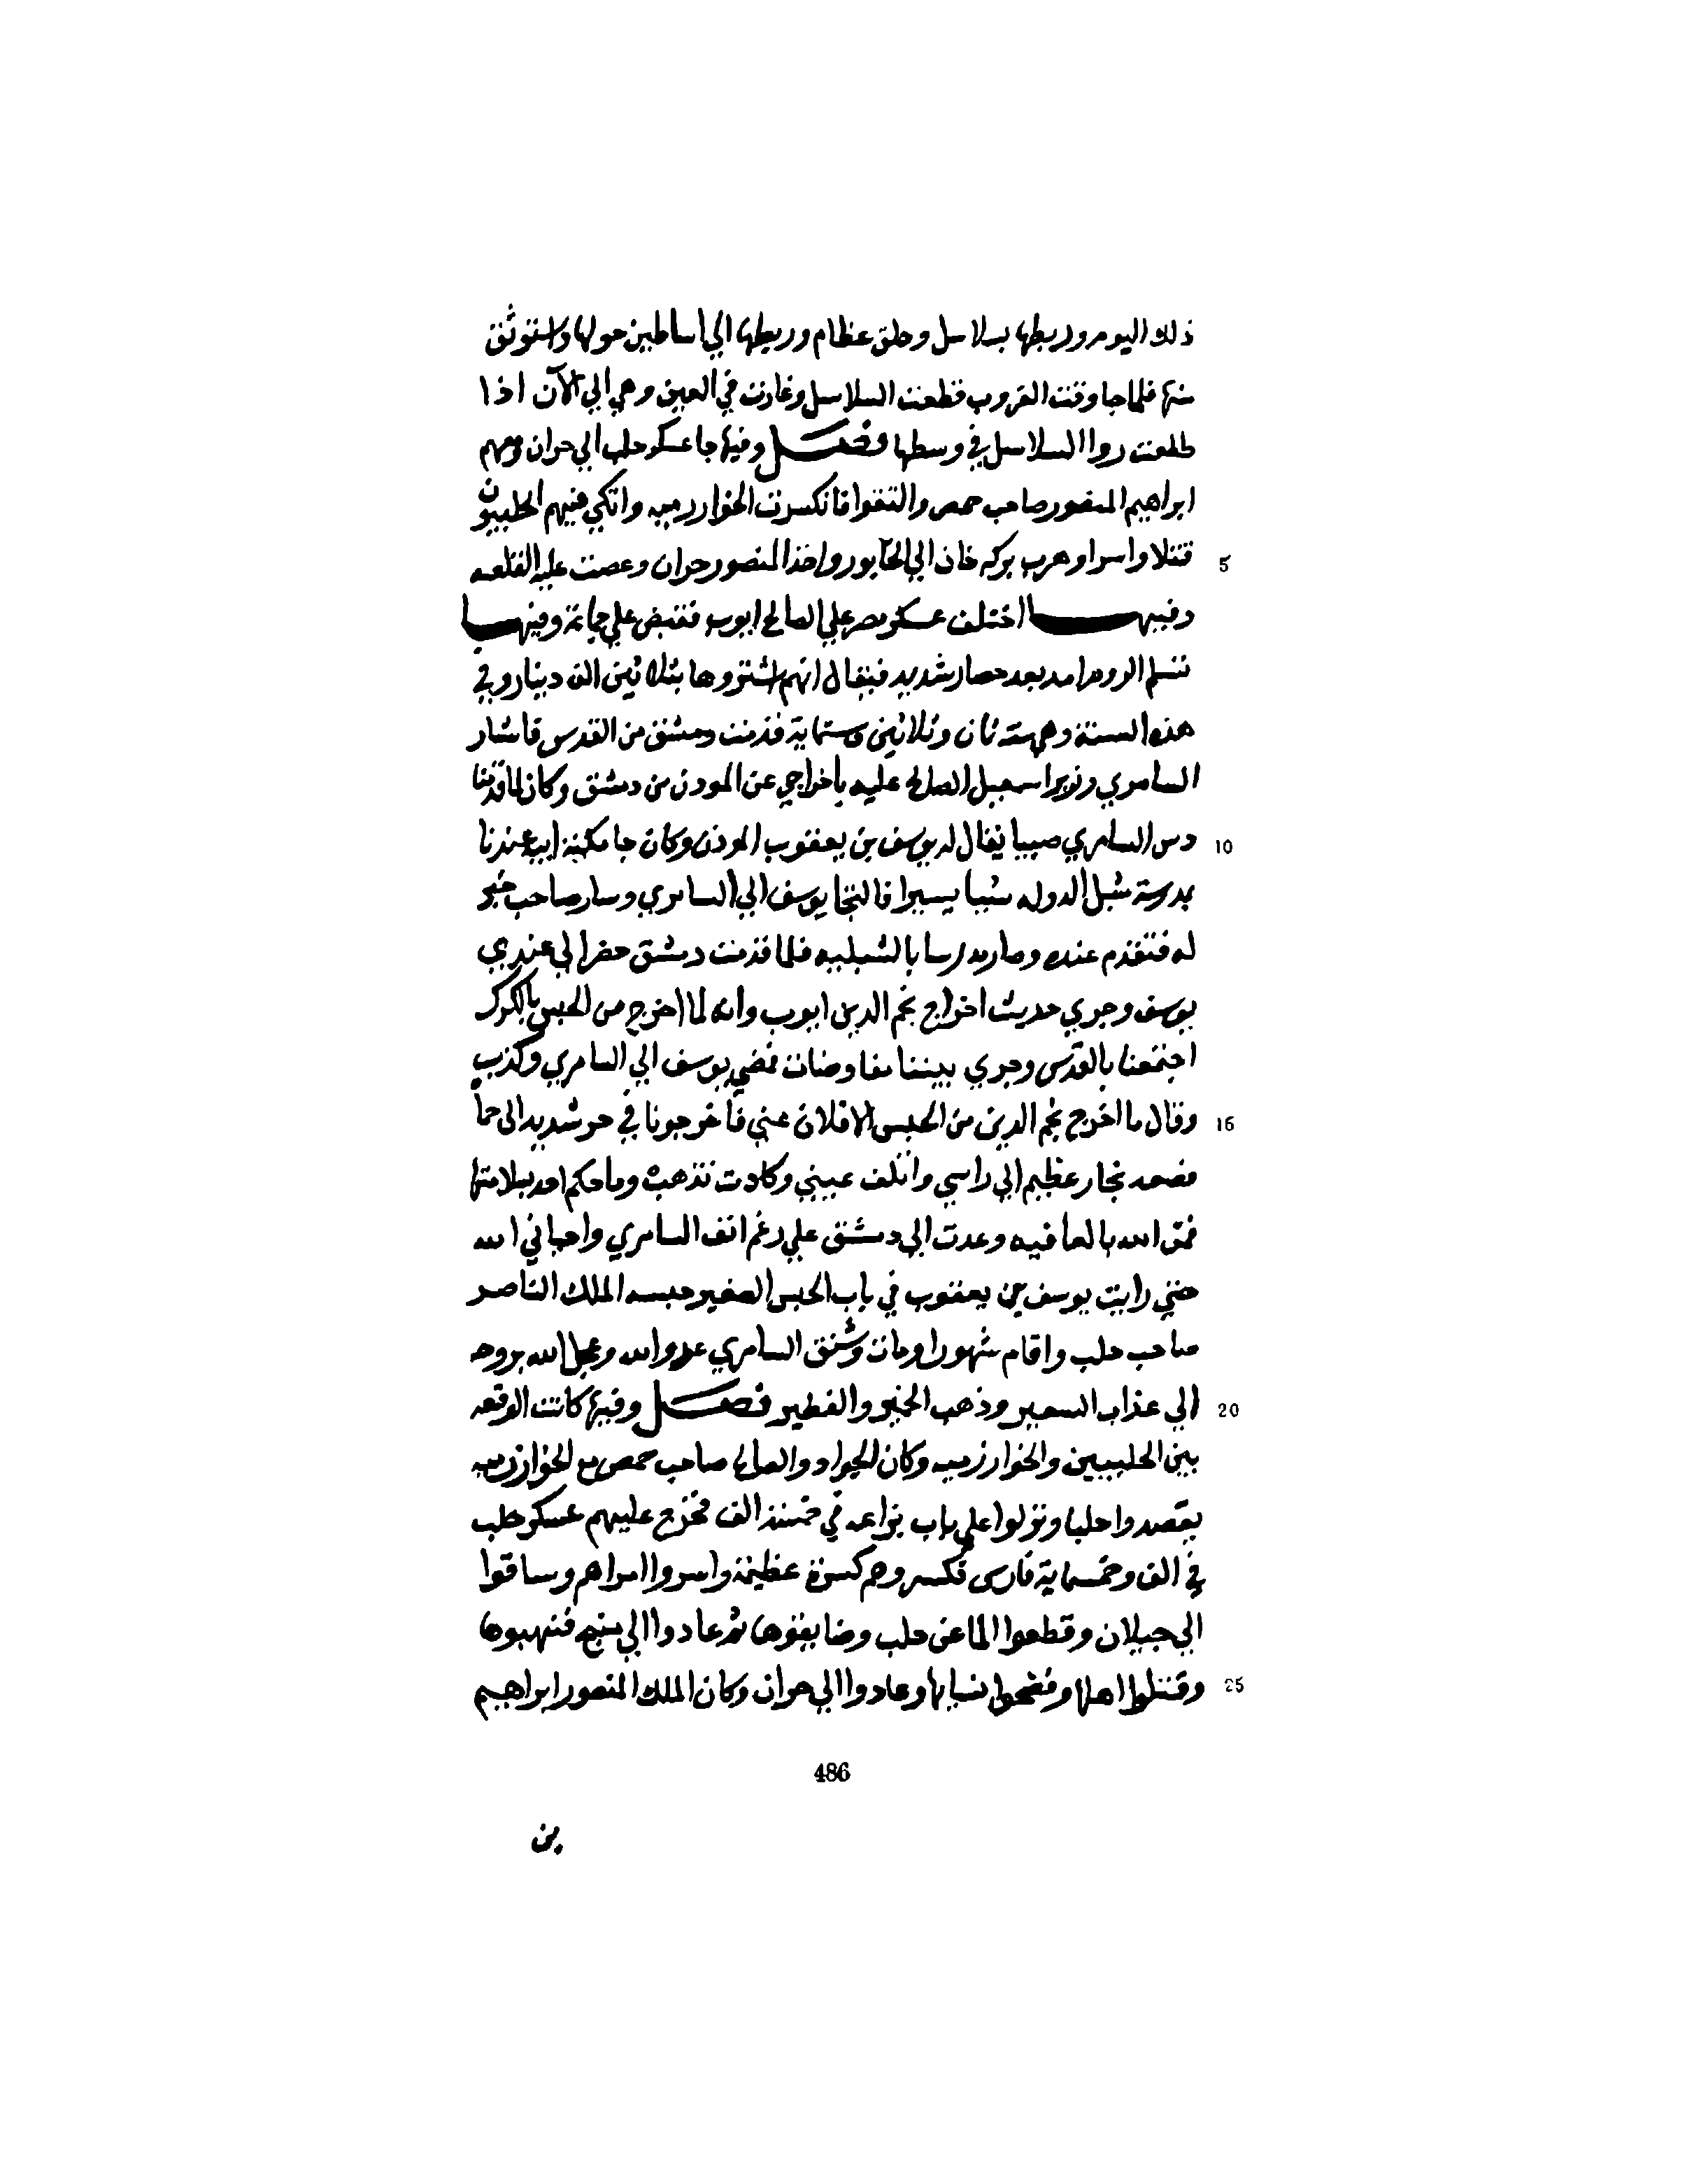 ذلك اليوم وربطها بسلاسل وحلق عظام وربطها الي اساطين حولها واستوثق
منها فلما جا وقت الغروب قطعت السلاسل وغارت في العين وهي الي الآن اذا
طلعت روا السلاسل في وسطها فصل وفيها جا عسكر حلب الي حران ومعهم
ابراهيم المنصور صاحب حمص والتقوا فانكسرت الخوارزميه وانكي فيهم الحلبيون
5 قتلا واسرا وهرب بركه خان الي الخابور واخذ المنصور حران وعصت عليه القلعه
وفيها اختلف عسكر مصر علي الصالح ايوب فقبض علي جماعة وفيها
تسلم الروم امد بعد حصار شديد فيقال انهم اشتروها بثلاثين الف دينار وفي
هذه السنة وهي سنة ثمان وثلاثين وستماية قدمت دمشق من القدس فاشار
السامري وزير اسمعيل الصالح عليه باخراجي عن المودن من دمشق وكان لما قدمنا
10 دس السامري صبيا يقال له يوسف بن يعقوب المودن وكان جامكية ابيه عندنا
بمدرسة شبل الدوله شيا يسيرا فالتجا يوسف الي السامري وصار صاحب خبر
له فتقدم عنده وصار مدرسا بالشبليه فلما قدمت دمشق حضر الي عندي
يوسف وجري حديث اخراج نجم الدين ايوب وانه لما اخرج من الحبس بالكرك
اجتمعنا بالقدس وجري بيننا مفاوضات فمضي يوسف الي السامري وكذب
15 وقال ما اخرج نجم الدين من الحبس الا فلان عني فاخرجونا في حر شديد الى حما
فصعد بخار عظيم الي راسي واتلف عيني وكادت تذهب وما حكم احد بسلامتها
فمن الله بالعافيه وعدت الي دمشق علي رغم انف السامري واحياني الله
حتي رايت يوسف بن يعقوب في باب الحبس الصغير حبسه الملك الناصر
صاحب حلب واقام شهورا ومات وشنق السامري عدو الله وعجل الله بروحه
20 الي عذاب السعير وذهب الخبز والفطير فصل وفيها كانت الوقعه
بين الحلبيين والخوارزميه وكان الجواد والصالح صاحب حمص مع الخوارزميه
يقصدوا حلبا ونزلوا علي باب بزاعه في خمسة الف فخرج عليهم عسكر حلب
في الف وخمسماية فارس فكسروهم كسرة عظيمة واسروا امراهم وساقوا
الي جيلان وقطعوا الما عن حلب وضايقوها ثم عادوا الي منبج فنهبوها
25 وقتلوا اهلها وفضحوا نسايها وعادوا الي حران وكان الملك المنصور ابراهيم
486
بن